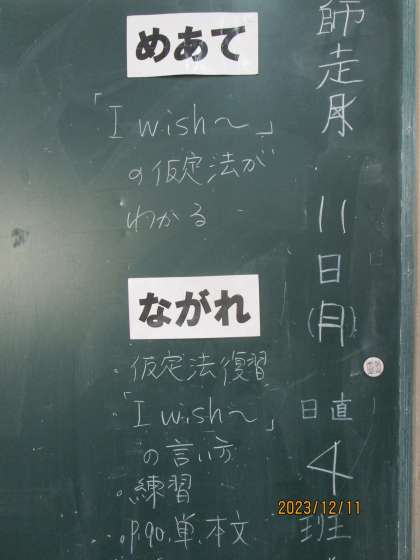 めあて
「I wish～」
の仮定法が
わかる
ながれ
・仮定法復習
・「I wish～」
の言い方
・練習
・p.90.単.本文
師走月
11日(月)
日直
4
班
2023/12/11